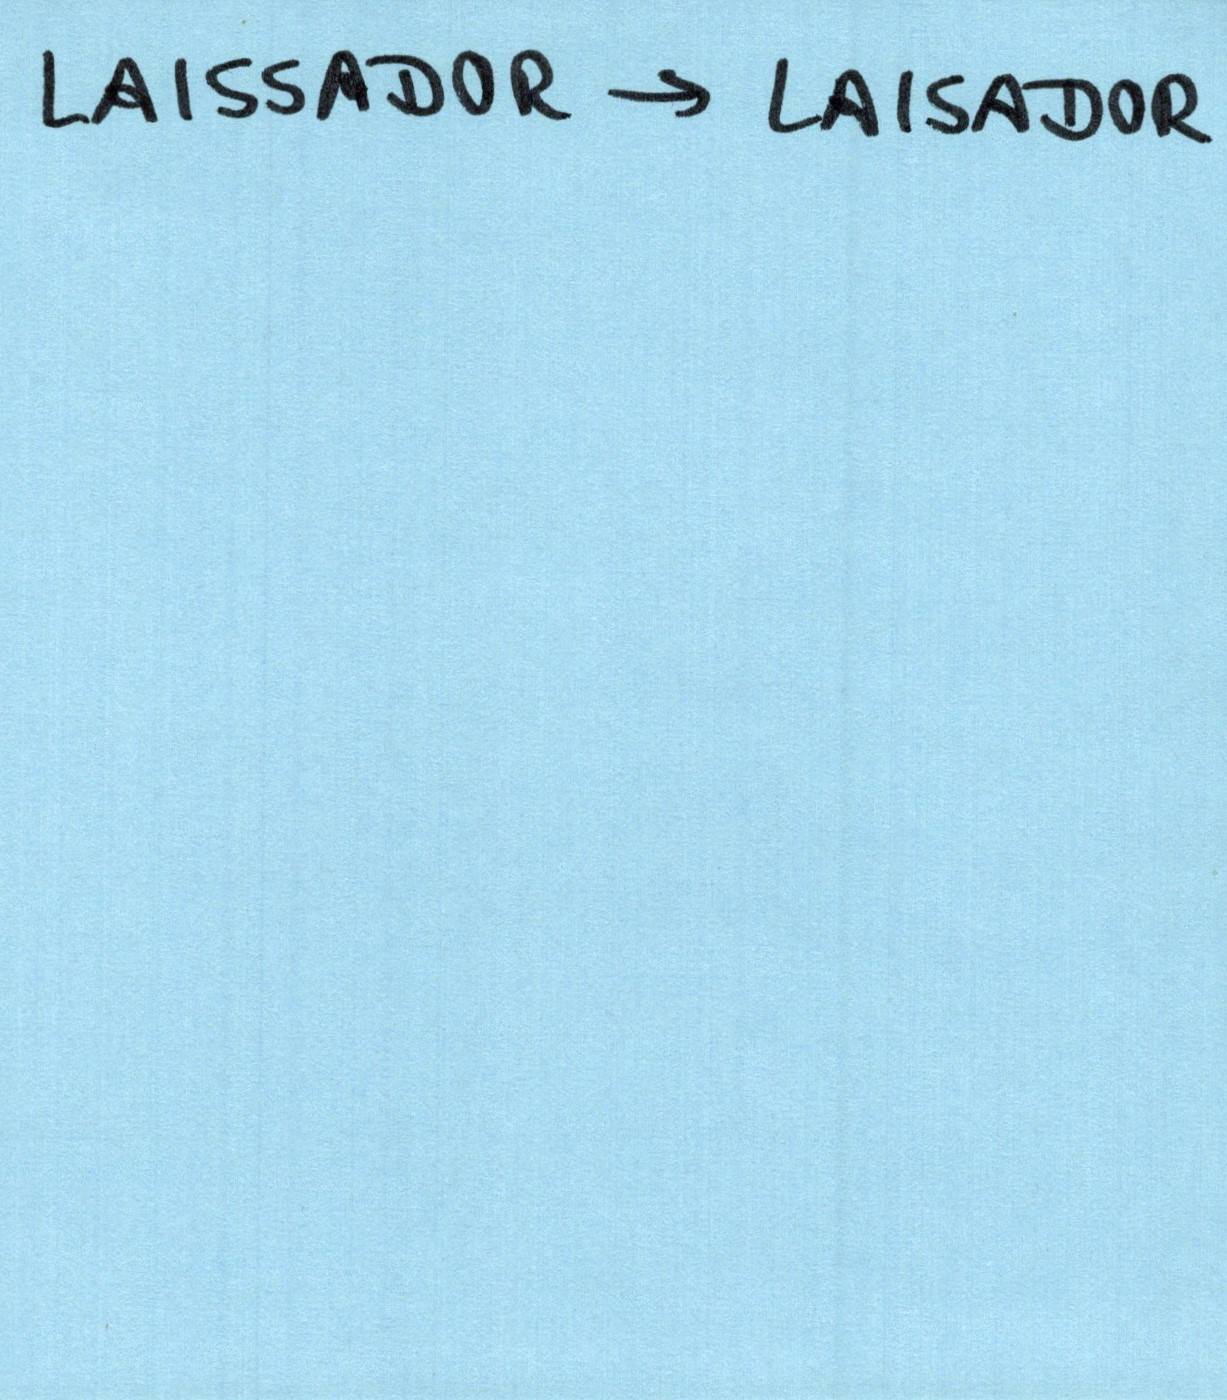 LAISSADOR → LAISADOR